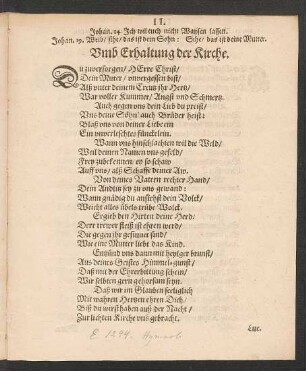 II.
Johan. 14. Ich wil euch nicht Waysen lassen.
Johan. 19. Weib/ sihe/ das ist dein Sohn: Sihe/ das ist deine Mutter.
Vmb Erhaltung der Kirche.
Du zuversorgen/ HErr Christ/
Dein Mutter/ unvergessen bist/
Alß unter deinem Creutz ihr Hertz/
War voller Kummer/ Angst und Schmertz.
Auch gegen uns dein Lieb du preist/
Vns deine Söhn/ auch Brüder heist:
Blaß uns von deiner Liebe ein
Ein unverleschtes füncklein.
Wann uns hinschlachten wil die Welt/
Weil deinen Namen uns gefelt/
Frey zubekennen/ ey so schaw
Auff uns/ alß Schaffe deiner Aw.
Von deines Vattern rechter Hand/
Dein Antlitz sey zu uns gewand:
Wann gnädig du ansihest dein Volck/
Weicht alles übels trübe Wolck.
Ergieb den Hirten deine Herd/
Derr trewer fleiß ist ehren werd/
Die gegen ihr gesinnet sind/
Wie eine Mutter liebt das Kind.
Entzünd uns dann mit heylger brunst/
Aus deines Geistes Himmels gunst/
Daß mit der Ehrerbittung schein/
Wir selbern gern gehorsam seyn.
Daß wir im Glauben seeliglich
Mit wahren Hertzen ehren Dich/
Biß du wirst haben auß der Nacht/
Zur lichten Kirche uns gebracht.
Luc.
E 1244.